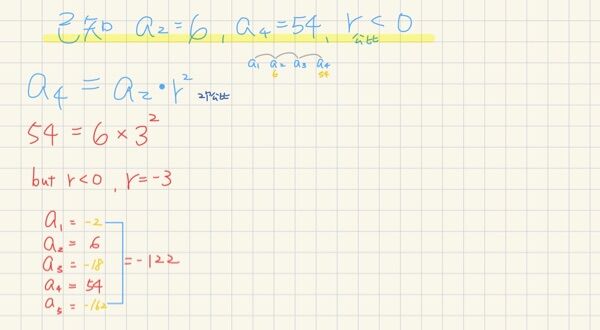 已知 a₂=6, a₄=54, r<0
公比
a₁ a₂ a₃ a₄
6 54
a₄ = a₂・r² 2個公比
54 = 6 × 3²
but r<0, r=-3
a₁ = -2
a₂ = 6
a₃ = -18 = -122
a₄ = 54
a₅ = -162